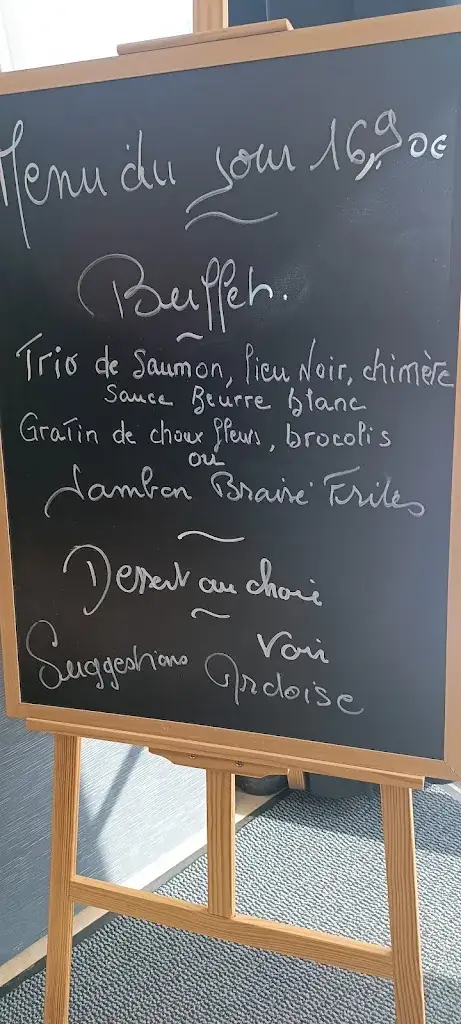 Menu du jour 16,90€
Buffet.
Trio de Saumon, lieu Noir, chimère
Sauce Beurre blanc
Gratin de choux fleurs, brocolis
ou
Jambon Braisé Frites
Dessert au choix
Voir
Suggestions Ardoise